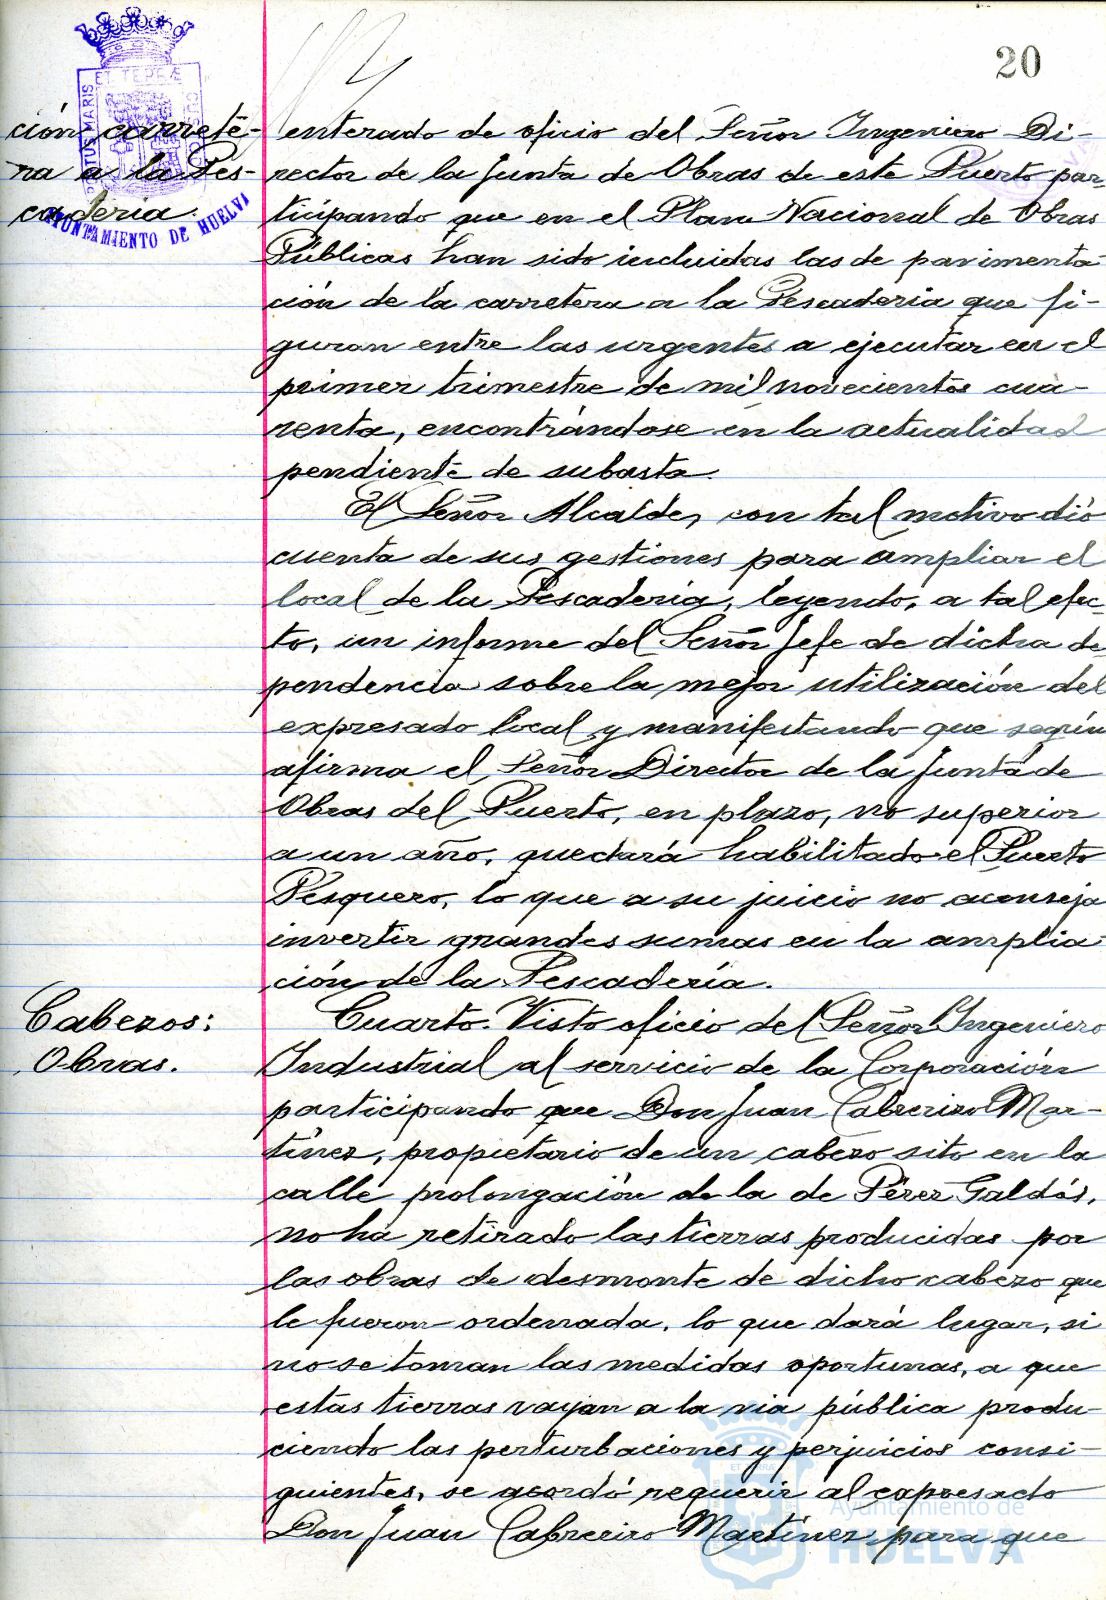 20
ción carrete-
ra a la Pes-
cadería.
PORTUS MARIS ET TERRÆ
AYUNTAMIENTO DE HUELVA
enterado de oficio del Señor Ingeniero Di-
rector de la Junta de Obras de este Puerto par-
ticipando que en el Plan Nacional de Obras
Públicas han sido incluidas las de pavimenta
ción de la carretera a la Pescadería que fi-
guran entre las urgentes a ejecutar en el
primer trimestre de mil novecientos cua-
renta, encontrándose en la actualidad
pendiente de subasta.
El Señor Alcalde, con tal motivo dió
cuenta de sus gestiones para ampliar el
local de la Pescadería, leyendo, a tal efec-
to, un informe del Señor Jefe de dicha de-
pendencia sobre la mejor utilización del
expresado local y manifestando que según
afirma el Señor Director de la Junta de
Obras del Puerto, en plazo, no superior
a un año, quedará habilitado el Puerto
Pesquero, lo que a su juicio no aconseja
invertir grandes sumas en la amplia-
ción de la Pescadería.
Cabezos:
Obras.
Cuarto. Visto oficio del Señor Ingeniero
Industrial al servicio de la Corporación
participando que Don Juan Cabrerizo Mar-
tínez, propietario de un cabezo sito en la
calle prolongación de la de Pérez Galdós,
no ha retirado las tierras producidas por
las obras de desmonte de dicho cabezo que
le fueron ordenada, lo que dará lugar, si
no se toman las medidas oportunas, a que
estas tierras vayan a la via pública produ-
ciendo las perturbaciones y perjuicios consi-
guientes, se acordó requerir al expresado
Don Juan Cabrerizo Martínez para que
Ayuntamiento de
HUELVA